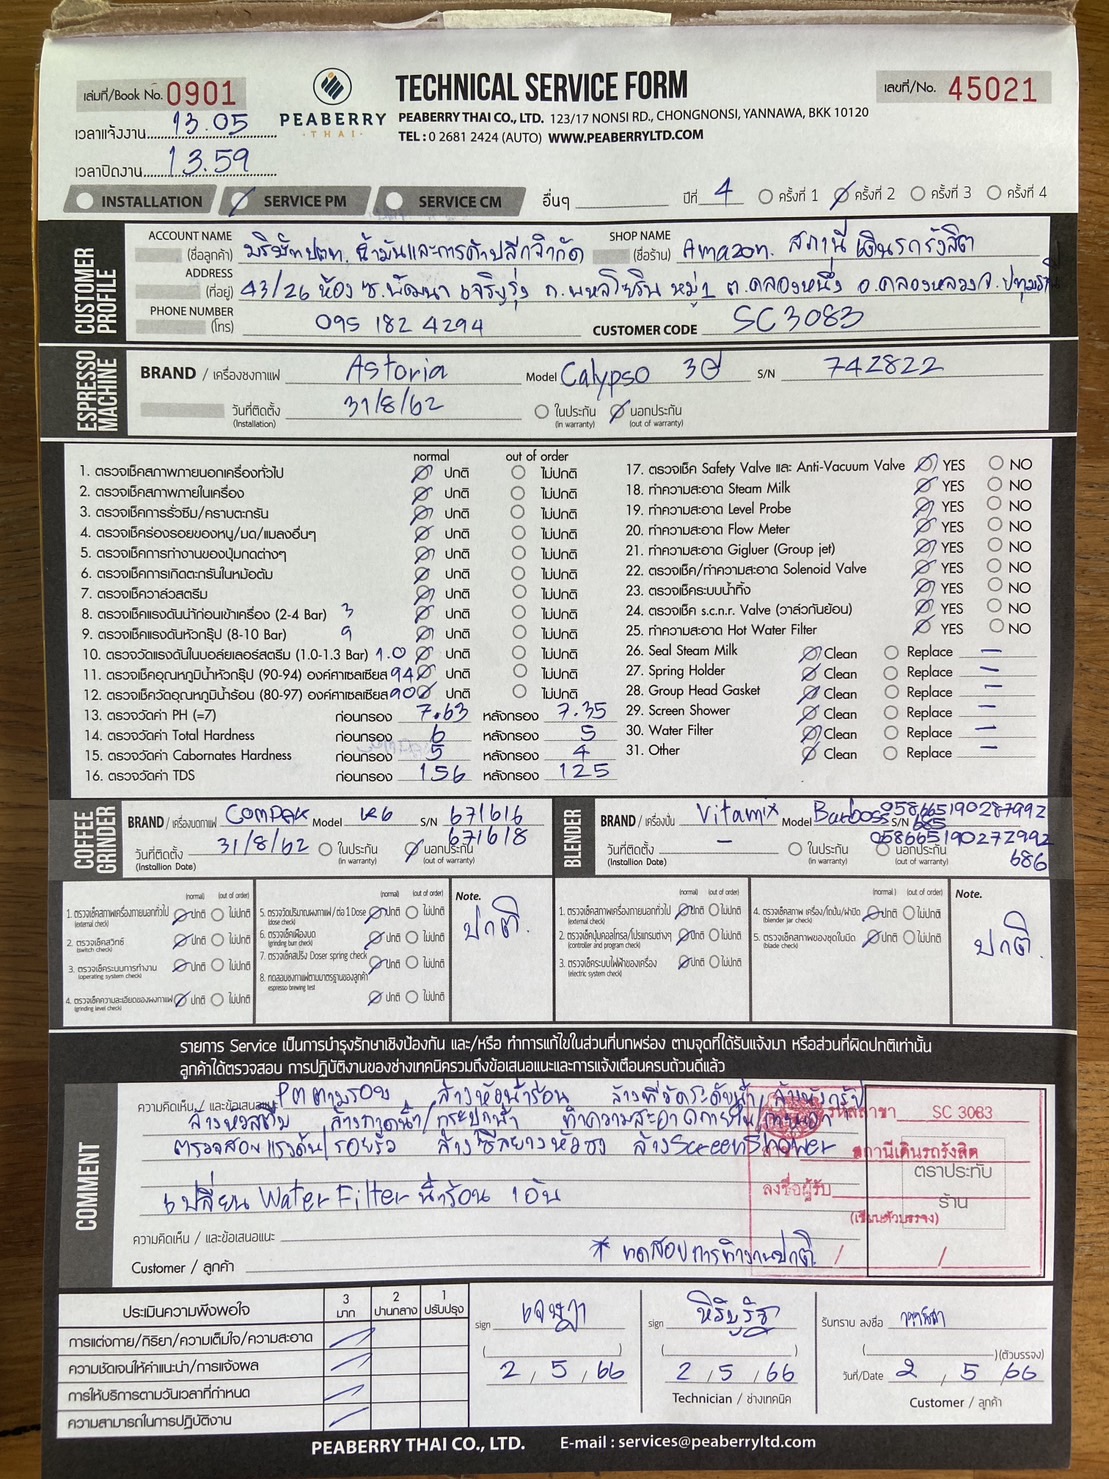 เล่มที่/Book No. 0901
PEABERRY
THAI
TECHNICAL SERVICE FORM
PEABERRY THAI CO., LTD. 123/17 NONSI RD., CHONGNONSI, YANNAWA, BKK 10120
TEL : 0 2681 2424 (AUTO) WWW.PEABERRYLTD.COM
เลขที่/No. 45021
เวลาแจ้งงาน 13.05
เวลาปิดงาน 13.59
INSTALLATION SERVICE PM SERVICE CM อื่นๆ ปีที่ 4 ครั้งที่ 1 ครั้งที่ 2 ครั้งที่ 3 ครั้งที่ 4
CUSTOMER PROFILE
ACCOUNT NAME (ชื่อลูกค้า) บริษัทปตท. น้ำมันและการค้าปลีกจำกัด SHOP NAME (ชื่อร้าน) Amazon. สถานีเดินรถรังสิต
ADDRESS (ที่อยู่) 43/26 ห้อง ซ.พัฒนา เจริญรุ่ง ถ.พหลโยธิน หมู่1 ต.คลองหนึ่ง อ.คลองหลวง จ.ปทุมธานี
PHONE NUMBER (โทร) 095 182 4294 CUSTOMER CODE SC 3083
ESPRESSO MACHINE
BRAND / เครื่องชงกาแฟ Astoria Model Calypso 3G S/N 742822
วันที่ติดตั้ง (Installation) 31/8/62 ในประกัน (in warranty) นอกประกัน (out of warranty)
normal out of order
1. ตรวจเช็คสภาพภายนอกเครื่องทั่วไป ปกติ ไม่ปกติ
2. ตรวจเช็คสภาพภายในเครื่อง ปกติ ไม่ปกติ
3. ตรวจเช็คการรั่วซึม/คราบตะกรัน ปกติ ไม่ปกติ
4. ตรวจเช็คร่องรอยของหนู/มด/แมลงอื่นๆ ปกติ ไม่ปกติ
5. ตรวจเช็คการทำงานของปุ่มกดต่างๆ ปกติ ไม่ปกติ
6. ตรวจเช็คการเกิดตะกรันในหม้อต้ม ปกติ ไม่ปกติ
7. ตรวจเช็ควาล์วสตรีม ปกติ ไม่ปกติ
8. ตรวจเช็คแรงดันน้ำก่อนเข้าเครื่อง (2-4 Bar) 3 ปกติ ไม่ปกติ
9. ตรวจเช็คแรงดันหัวกรุ๊ป (8-10 Bar) 9 ปกติ ไม่ปกติ
10. ตรวจวัดแรงดันในบอล์ยเลอร์สตรีม (1.0-1.3 Bar) 1.0 ปกติ ไม่ปกติ
11. ตรวจเช็คอุณหภูมิน้ำหัวกรุ๊ป (90-94) องศาเซลเซียส 94 ปกติ ไม่ปกติ
12. ตรวจเช็ควัดอุณหภูมิน้ำร้อน (80-97) องศาเซลเซียส 90 ปกติ ไม่ปกติ
13. ตรวจวัดค่า PH (=7) ก่อนกรอง 7.63 หลังกรอง 7.35
14. ตรวจวัดค่า Total Hardness ก่อนกรอง 6 หลังกรอง 5
15. ตรวจวัดค่า Cabornates Hardness ก่อนกรอง 5 หลังกรอง 4
16. ตรวจวัดค่า TDS ก่อนกรอง 156 หลังกรอง 125
17. ตรวจเช็ค Safety Valve และ Anti-Vacuum Valve YES NO
18. ทำความสะอาด Steam Milk YES NO
19. ทำความสะอาด Level Probe YES NO
20. ทำความสะอาด Flow Meter YES NO
21. ทำความสะอาด Gigluer (Group jet) YES NO
22. ตรวจเช็ค/ทำความสะอาด Solenoid Valve YES NO
23. ตรวจเช็คระบบน้ำทิ้ง YES NO
24. ตรวจเช็ค s.c.n.r. Valve (วาล์วกันย้อน) YES NO
25. ทำความสะอาด Hot Water Filter YES NO
26. Seal Steam Milk Clean Replace —
27. Spring Holder Clean Replace —
28. Group Head Gasket Clean Replace —
29. Screen Shower Clean Replace —
30. Water Filter Clean Replace —
31. Other Clean Replace —
COFFEE GRINDER
BRAND / เครื่องบดกาแฟ COMPAK Model K6 S/N 671616
671618
วันที่ติดตั้ง (Installion Date) 31/8/62 ในประกัน (in warranty) นอกประกัน (out of warranty)
BLENDER
BRAND / เครื่องปั่น Vitamix Model Barboss S/N 058665190287992
685
058665190272992
686
วันที่ติดตั้ง (Installion Date) — ในประกัน (in warranty) นอกประกัน (out of warranty)
(normal) (out of order)
1. ตรวจเช็คสภาพเครื่องภายนอกทั่วไป (external check) ปกติ ไม่ปกติ
2. ตรวจเช็คสวิทซ์ (switch check) ปกติ ไม่ปกติ
3. ตรวจเช็คระบบการทำงาน (operating system check) ปกติ ไม่ปกติ
4. ตรวจเช็คความละเอียดของผงกาแฟ (grinding level check) ปกติ ไม่ปกติ
(normal) (out of order)
5. ตรวจวัดปริมาณผงกาแฟ/ต่อ 1 Dose (dose check) ปกติ ไม่ปกติ
6. ตรวจเช็คเฟืองบด (grinding burr check) ปกติ ไม่ปกติ
7. ตรวจเช็คสปริง Doser spring check ปกติ ไม่ปกติ
8. ทดสอบชงกาแฟตามมาตรฐานของลูกค้า espresso brewing test ปกติ ไม่ปกติ
Note.
ปกติ.
(normal) (out of order)
1. ตรวจเช็คสภาพเครื่องภายนอกทั่วไป (external check) ปกติ ไม่ปกติ
2. ตรวจเช็คปุ่มคอลโทรล/โปรแกรมต่างๆ (controller and program check) ปกติ ไม่ปกติ
3. ตรวจเช็คระบบไฟฟ้าของเครื่อง (electric system check) ปกติ ไม่ปกติ
(normal) (out of order)
4. ตรวจเช็คสภาพ เครื่อง/โถปั่น/ฝาปิด (blender jar check) ปกติ ไม่ปกติ
5. ตรวจเช็คสภาพของชุดใบมีด (blade check) ปกติ ไม่ปกติ
Note.
ปกติ
รายการ Service เป็นการบำรุงรักษาเชิงป้องกัน และ/หรือ ทำการแก้ไขในส่วนที่บกพร่อง ตามจุดที่ได้รับแจ้งมา หรือส่วนที่ผิดปกติเท่านั้น
ลูกค้าได้ตรวจสอบ การปฏิบัติงานของช่างเทคนิครวมถึงข้อเสนอแนะและการแจ้งเตือนครบถ้วนดีแล้ว
COMMENT
ความคิดเห็น / และข้อเสนอแนะ PM ตามรอบ ล้างหัวน้ำร้อน ล้างที่วัดระดับน้ำ ล้างหัวกรุ๊ป
ล้างหัวสตีม ล้างถาดน้ำ/กระปุกน้ำ ทำความสะอาดภายใน/ภายนอก
ตรวจสอบแรงดัน/รอยรั่ว ล้างซีลยางหัวชง ล้าง Screen Shower
เปลี่ยน Water Filter น้ำร้อน 1 อัน
รหัสสาขา SC 3083
สถานีเดินรถรังสิต
ลงชื่อผู้รับ
(เขียนตัวบรรจง)
/ /
ตราประทับ
ร้าน
ความคิดเห็น / และข้อเสนอแนะ
Customer / ลูกค้า
* ทดสอบการทำงานปกติ
ประเมินความพึงพอใจ 3 มาก 2 ปานกลาง 1 ปรับปรุง
การแต่งกาย/กิริยา/ความเต็มใจ/ความสะอาด
ความชัดเจนให้คำแนะนำ/การแจ้งผล
การให้บริการตามวันเวลาที่กำหนด
ความสามารถในการปฏิบัติงาน
sign
( )
2 , 5 , 66
sign
( )
2 , 5 , 66
Technician / ช่างเทคนิค
รับทราบ ลงชื่อ
( ) (ตัวบรรจง)
วันที่/Date 2 , 5 , 66
Customer / ลูกค้า
PEABERRY THAI CO., LTD. E-mail : services@peaberryltd.com